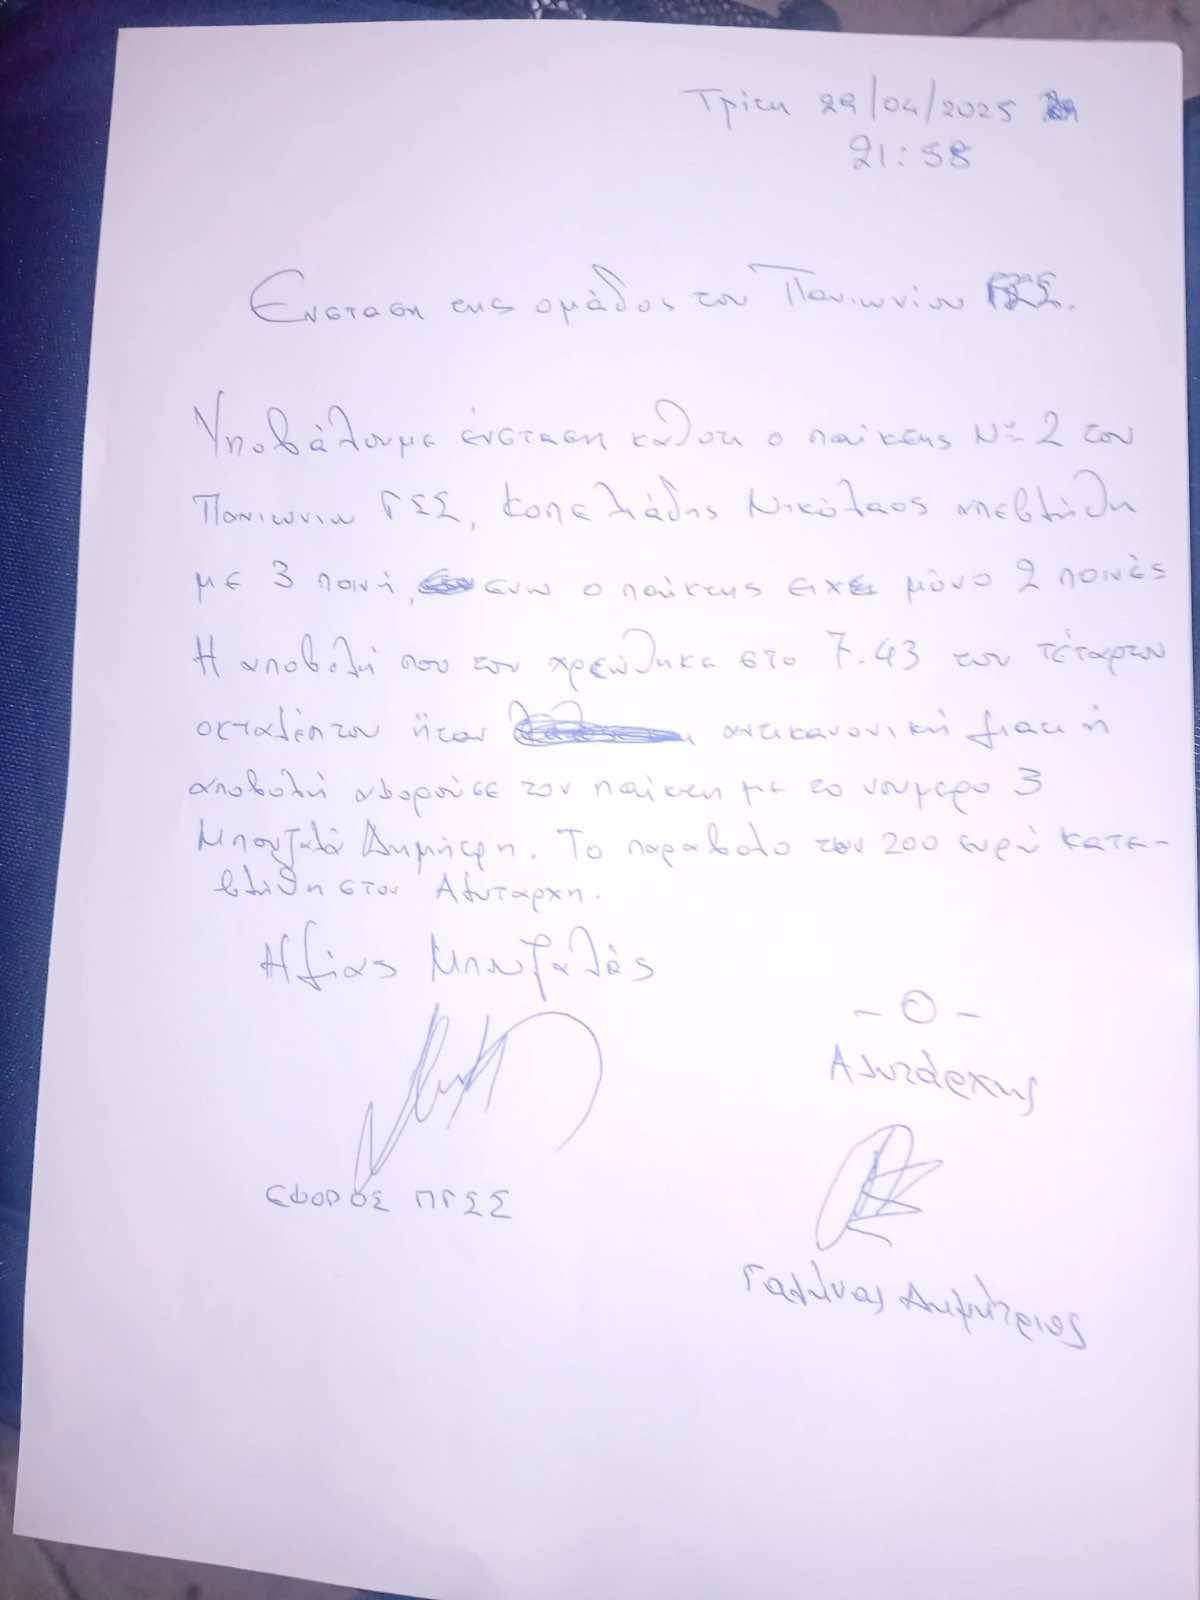 Τρίτη 29/04/2025
21:58
Ένσταση της ομάδος του Πανιωνίου ΓΣΣ.
Υποβάλουμε ένσταση καθότι ο παίκτης Νο 2 του
Πανιωνιου ΓΣΣ, Κοπελιάδης Νικόλαος απεβλήθη
με 3 ποινή, ενω ο παίκτης ειχε μόνο 2 ποινές
Η αποβολή που του χρεώθηκε στο 7.43 του τέταρτου
οκταλέπτου ήταν αντικανονική γιατι ή
αποβολή αφορούσε τον παίκτη με το νουμερο 3
Μπουζαλά Δημήτρη. Το παραβολο των 200 ευρώ κατε-
βλήθη στον Αλυταρχη.
Ηλίας Μπουζαλάς
- Ο -
Αλυτάρχης
ΕΦΟΡΟΣ ΠΓΣΣ
Γαλήνας Δημήτριος